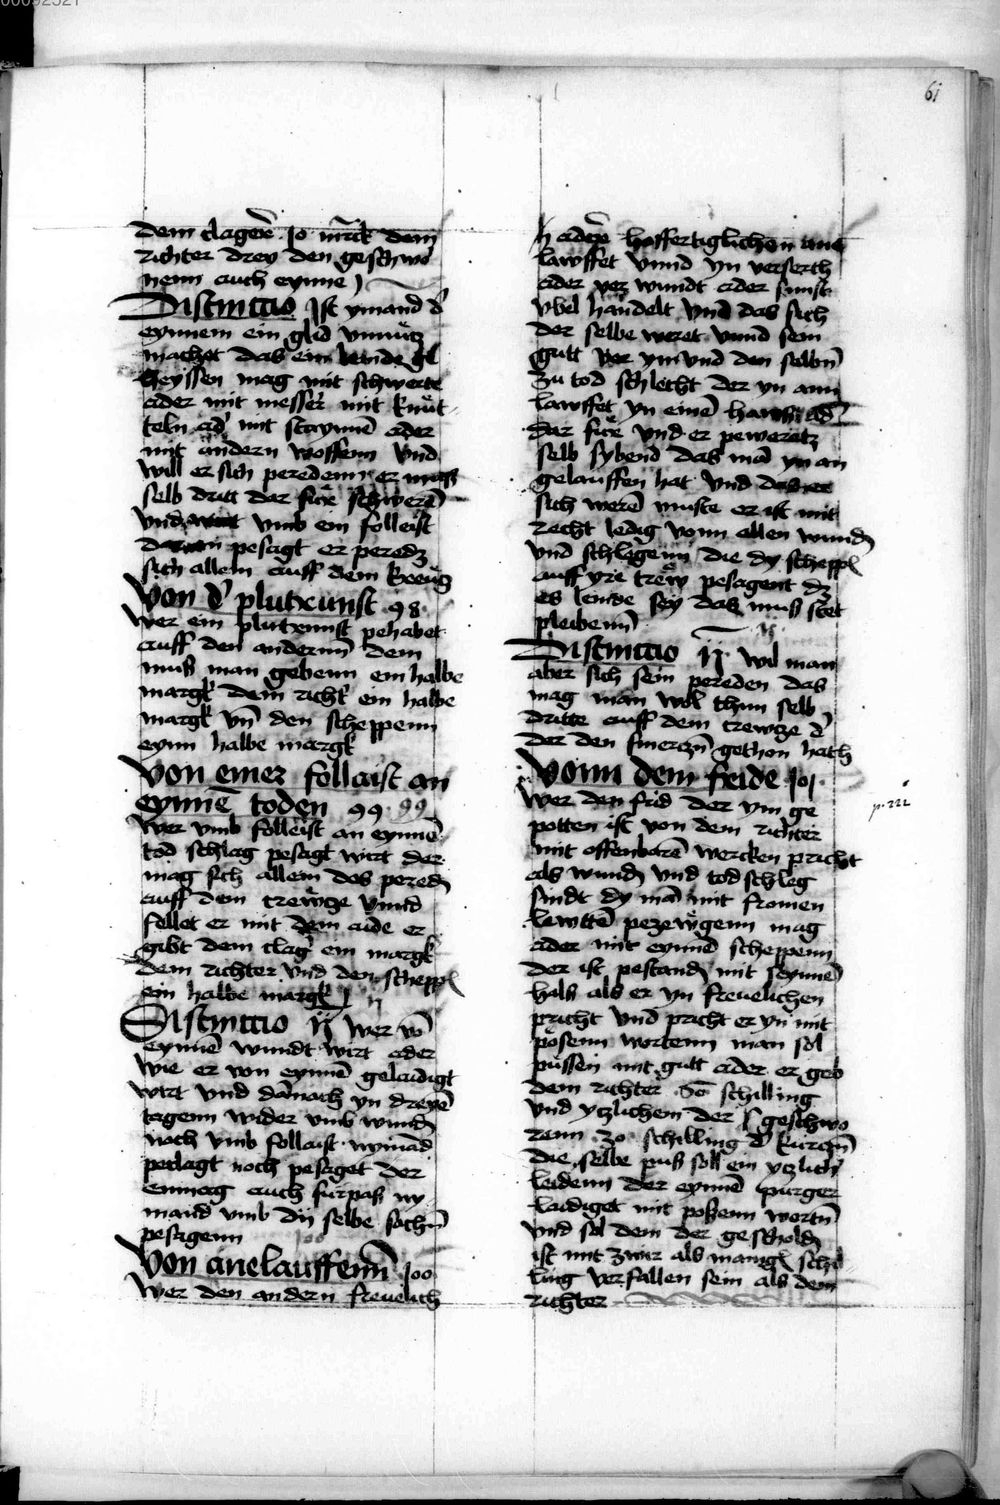 61
dem clagere 10 marck dem
richter drey den geschwo
nenn auch eynne
Distinctio Ist ymand d'
eynnem ein glid vnnutz
machet das ein lemde
heyssen mag mit schwerte
ader mit messer mit knut
teln ad' mit staynnē ader
mit andern woffenn vnd
will er sich peredenn er muß
selb dritt dar fure schwerē
vnd vmb ein folleist
pesagt er peredz
sich allein auff dem krewtz
Von d' plutrunst 98
Wer ein plutrunst pehabet
auff den andernn dem
muß man gebenn ein halbe
margk dem richt' ein halbe
margk vn̄ den scheppenn
eynn halbe margk
Von einer follaist an
eynnē toden 99 99
Wer vmb folleist an eynnē
tod schlag pesagt wirt der
mag sich allein des pered
auff dem crewtze vnnd
fellet er mit dem aide er
gibt dem clag' ein margk
dem richter vnd den scheppē
ein halbe margk
Distinctio ij Wer vō
eynnē wundt wirt ader
wie er von eynnē gelaidigt
wirt vnd darnach yn dreyē
tagenn wider vmb wund
noch vmb follaist nymād
peclagt noch pesaget der
enmag auch furpaß ny
mand vmb dy selbe sachn̄
pesagenn
Von anelauffenn̄ 100
Wer den andern freuelich
h adere hoffertiglichen ane
lawffet vnnd yn verserth
ader ver wundt ader sunst
vbel handelt vnd das sich
der selbe weret vnnd sein
gutt vor ym vnd den selbn̄
zu tod schlecht der yn ann
lawffet yn einē hawß ad'
dar fure vnd er peweretz
selb sybend das mā yn an
gelauffen hat vnd das er
sich werē muste er ist mit
recht ledig vonn allen wund
vnd schlegenn die dy scheppē
auff yre trew pesagent dz
es lemde sey das muß stet
pleibenn̄
Distinctio ij Wil man
aber sich sein pereden das
mag man wol thun selb
dritte auff dem crewtze d'
der den smerczn̄ gethon hath
Vonn dem fride 101
p. 222
Wer den frid der ym ge
potten ist von dem richter
mit offenbarē wercken pricht
als wund vnd tod schleg
sindt dy mā mit fromen
lewttē pezewgenn mag
ader mit eynnē scheppenn
der ist pestand mit seynnē
hals als er yn freuelichen
pricht vnd pricht er yn mit
pösenn wortenn man sol
pussen mit gutt ader er geb
dem richter 60 schilling
vnd yczlichem der geschwo
renn 30 schilling d' kurczn̄
die selbe puß soll ein yczlich'
leidenn der eynnē purger
laidiget mit posenn wortn̄
vnd sol dem der gescholdn̄
ist mit zwir als manigē schil
ling verfallen sein als dem
richter